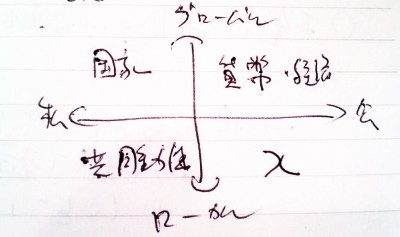 グローバル
国家 貨幣・経済
私 公
共同体 X
ローカル